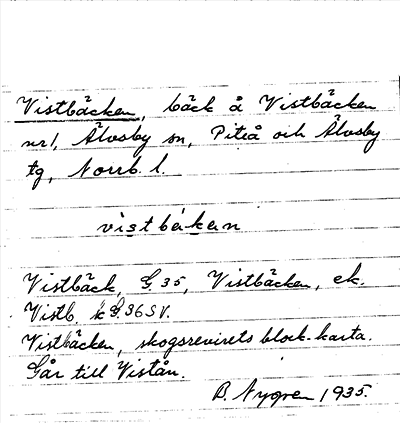 Vistbäcken, bäck å Vistbäcken
nr 1, Älvsby sn, Piteå och Älvsby
tg, Norrb. l.
vistbäkan
Vistbäck, G.35, Vistbäcken, ek.
Vistb k G.36SV.
Vistbäcken, skogsrevirets block-karta.
Går till Vistån.
B. Nygren 1935.